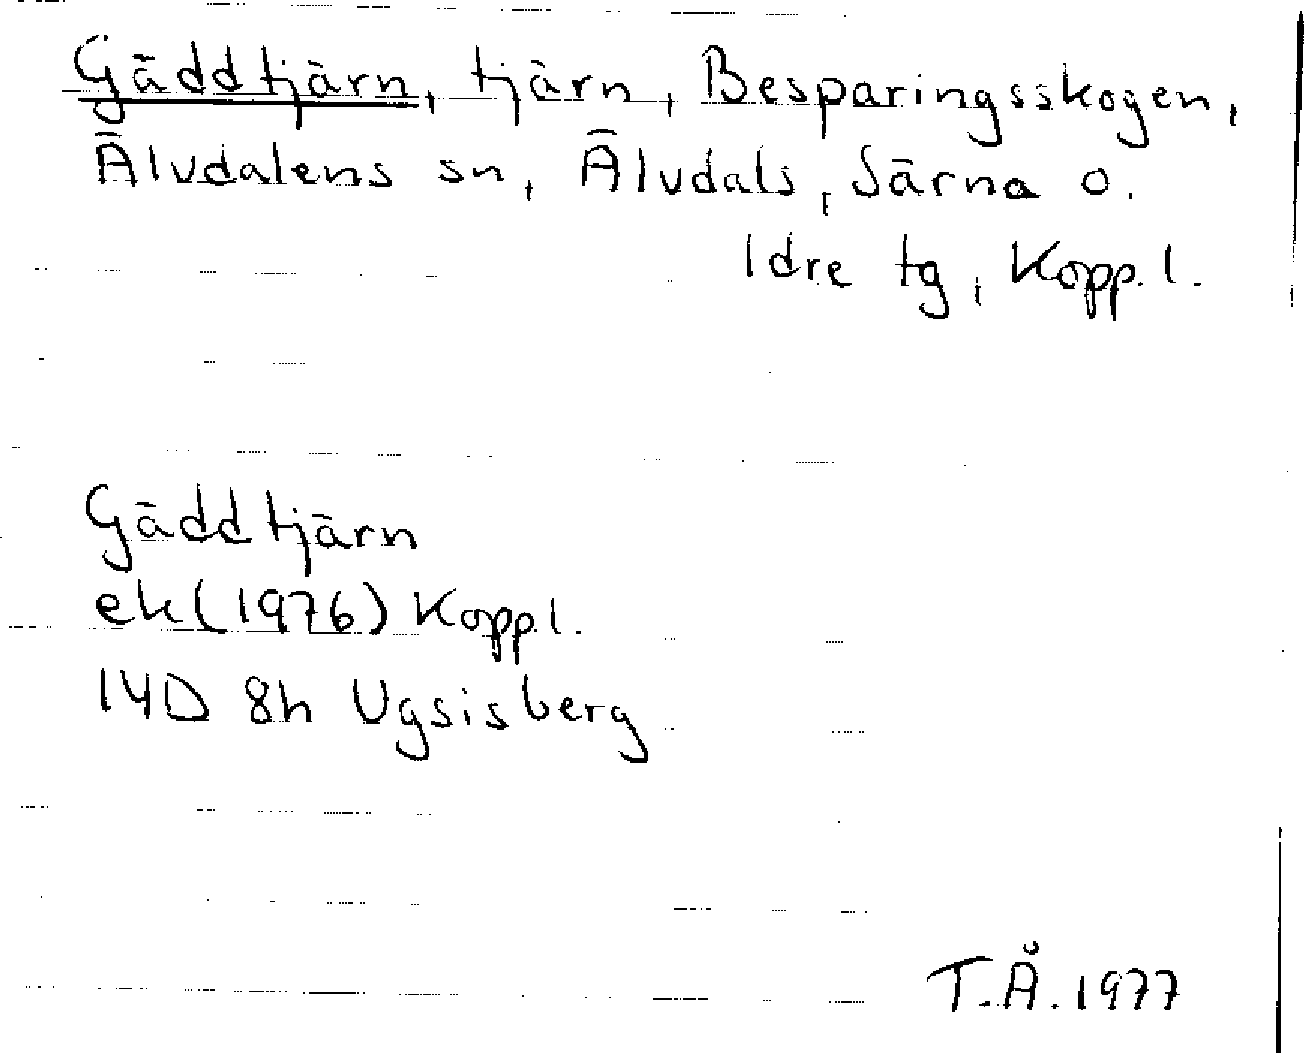 Gäddtjärn, tjärn, Besparingsskogen,
Älvdalens sn, Älvdals, Särna o.
Idre tg, Kopp.l.
Gäddtjärn
ek (1976) Kopp.l.
14D 8h Ugsisberg
T.Å. 1977